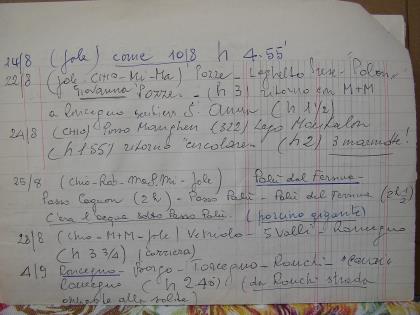 14/8 (Jole) come 10/8 h 4.55'
22/8 (Jole Chio-Mi-Ma) Pozze - Laghetto
Giovanna Pozze - (h 3) ritorno con M+M
a Roncegno sentiero S. Anna (h 1 1/2)
24/8 (Chio) Passo Manghen (322) Lago
(h 1.55) ritorno circolare (h 2) 3 marmotte!
25/8 (Chio-Rob-Ma+Mi-Jole) Palù del Fersina
Passo Cagnon (2 h) - Passo Palù - Palù del Fersina (2 h 1/2)
C'era l'acqua sotto Passo Palù. (porcino gigante)
28/8 (Chio-M+M-Jole) Vetriolo - 5 Valli - Roncegno
(h 3 3/4) (corriera)
4/9 Roncegno - Borgo - Torcegno - Ronchi -
Roncegno (h 2.40) (da Ronchi strada
alla solita)